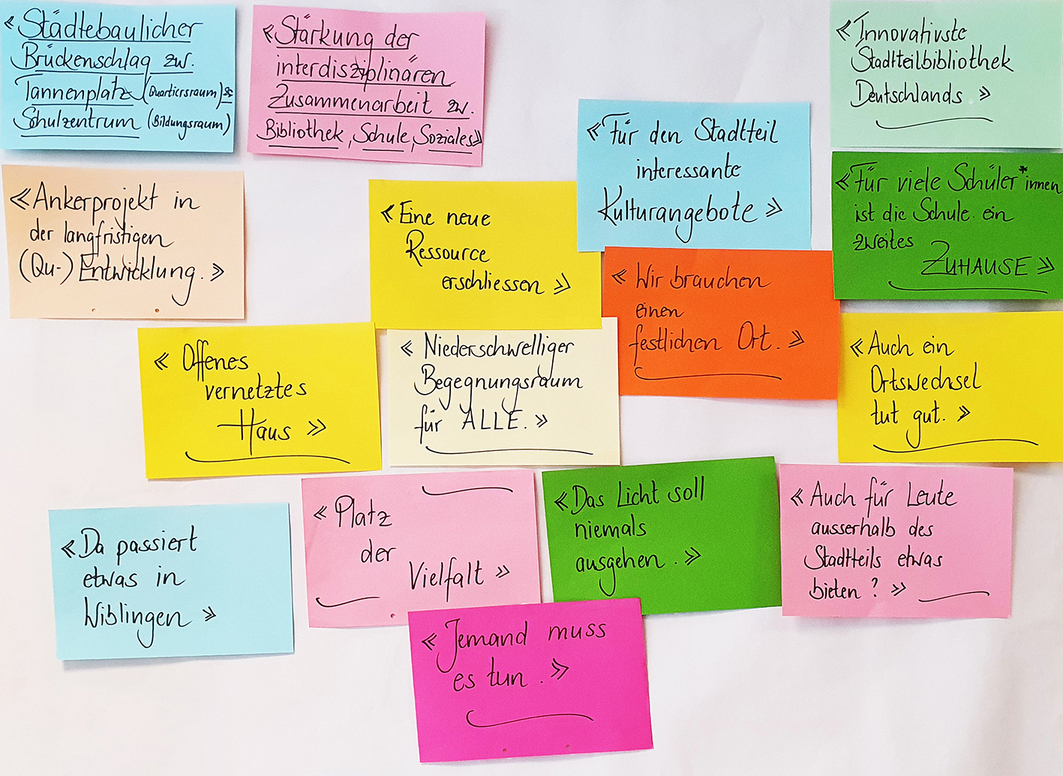 «Städtebaulicher
Brückenschlag zw.
Tannenplatz (Quartiersraum) &
Schulzentrum (Bildungsraum)
«Stärkung der
interdisziplinären
Zusammenarbeit zw.
Bibliothek, Schule, Soziales»
«Innovativste
Stadtteilbibliothek
Deutschlands »
«Für den Stadtteil
interessante
Kulturangebote »
«Für viele Schüler*innen
ist die Schule ein
zweites
ZUHAUSE »
«Ankerprojekt in
der langfristigen
(Qu-) Entwicklung. »
«Eine neue
Ressource
erschliessen »
«Wir brauchen
einen
festlichen Ort. »
« Offenes
vernetztes
Haus »
« Niederschwelliger
Begegnungsraum
für ALLE. »
«Auch ein
Ortswechsel
tut gut. »
«Da passiert
etwas in
Wiblingen »
«Platz
der
Vielfalt »
«Das Licht soll
niemals
ausgehen. »
«Auch für Leute
ausserhalb des
Stadtteils etwas
bieten ? »
«Jemand muss
es tun. »